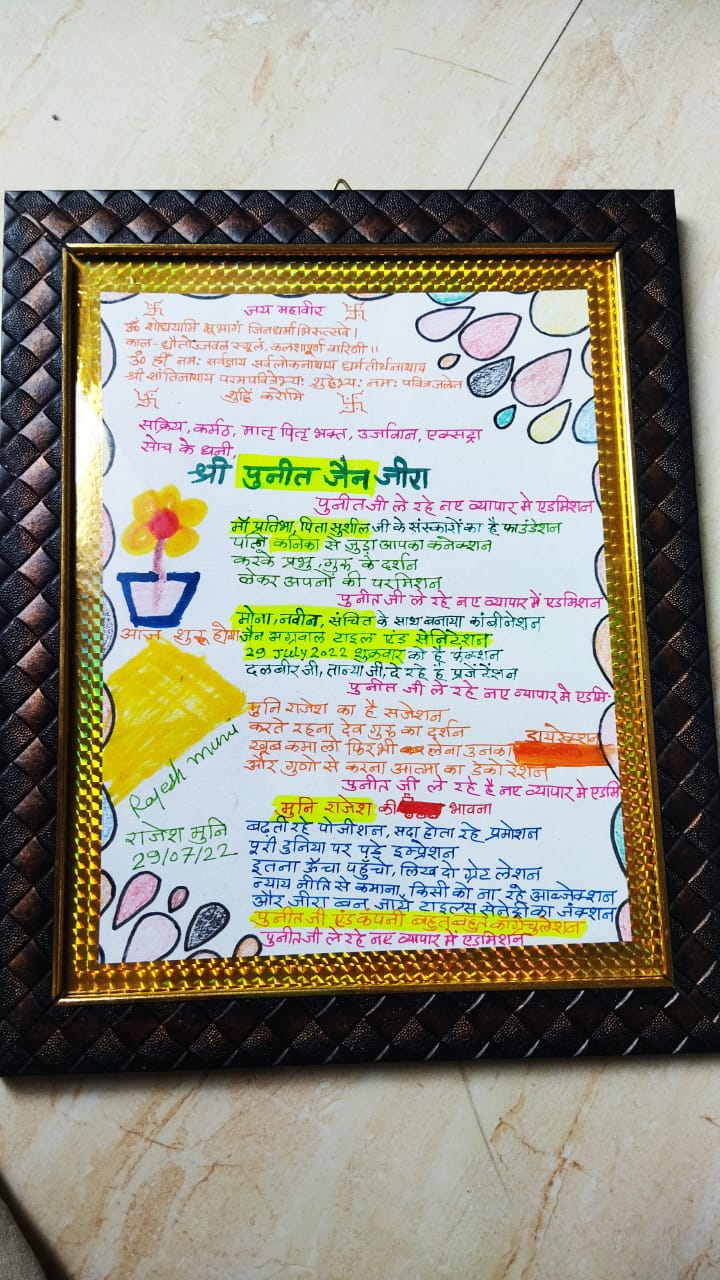 जय महावीर
ॐ शोधयामि भूभागं जिनधर्माभिरुत्सवे।
काल-धौतोज्जवल स्थूलं, कलशापूर्ण वारिणी।।
ॐ ह्रीं नमः सर्वज्ञाय सर्वलोकनाथाय धर्मतीर्थनाथाय
श्री शांतिनाथाय परमपवित्रेभ्यः शुद्धेभ्यः नमः पवित्रजलेन
शुद्धिं करोमि
सक्रिय, कर्मठ, मातृ पितृ भक्त, उर्जावान, एक्सट्रा
सोच के धनी,
श्री पुनीत जैन जीरा
पुनीतजी ले रहे नए व्यापार मे एडमिशन
माँ प्रतिभा, पिता सुशील जी के संस्कारों का है फाउंडेशन
पत्नि कनिका से जुड़ा आपका कनेक्शन
करके प्रभु, गुरु के दर्शन
लेकर अपनों की परमिशन
पुनीत जी ले रहे नए व्यापार में एडमिशन
मोना, नवीन, संचित के साथ बनाया कांबीनेशन
आज शुरू होगा जैन अग्रवाल टाइल एंड सेनिटेशन
29 July 2022 शुक्रवार को है फंक्शन
दलबीर जी, तान्या जी, दे रहे है प्रजेंटेशन
पुनीत जी ले रहे नए व्यापार मे एडमि-
मुनि राजेश का है सजेशन
करते रहना देव गुरु का दर्शन
खूब कमा लो फिर भी लेना उनका डायरेक्शन
और गुणो से करना आत्मा का डेकोरेशन
पुनीत जी ले रहे है नए व्यापार मे एडमि
Rajesh muni
राजेश मुनि
29/07/22
मुनि राजेश की भावना
बढ़ती रहे पोजीशन, सदा होता रहे प्रमोशन
पूरी दुनिया पर पड़े इम्प्रेशन
इतना ऊँचा पहुँचो, लिख दो ग्रेट लेशन
न्याय नीति से कमाना, किसी को ना रहे आब्जेक्शन
और जीरा बन जाये टाइल्स सेनेट्री का जंक्शन
पुनीतजी एंड कंपनी बहुत बहुत कांग्रेचुलेशन
पुनीतजी ले रहे नए व्यापार मे एडमिशन